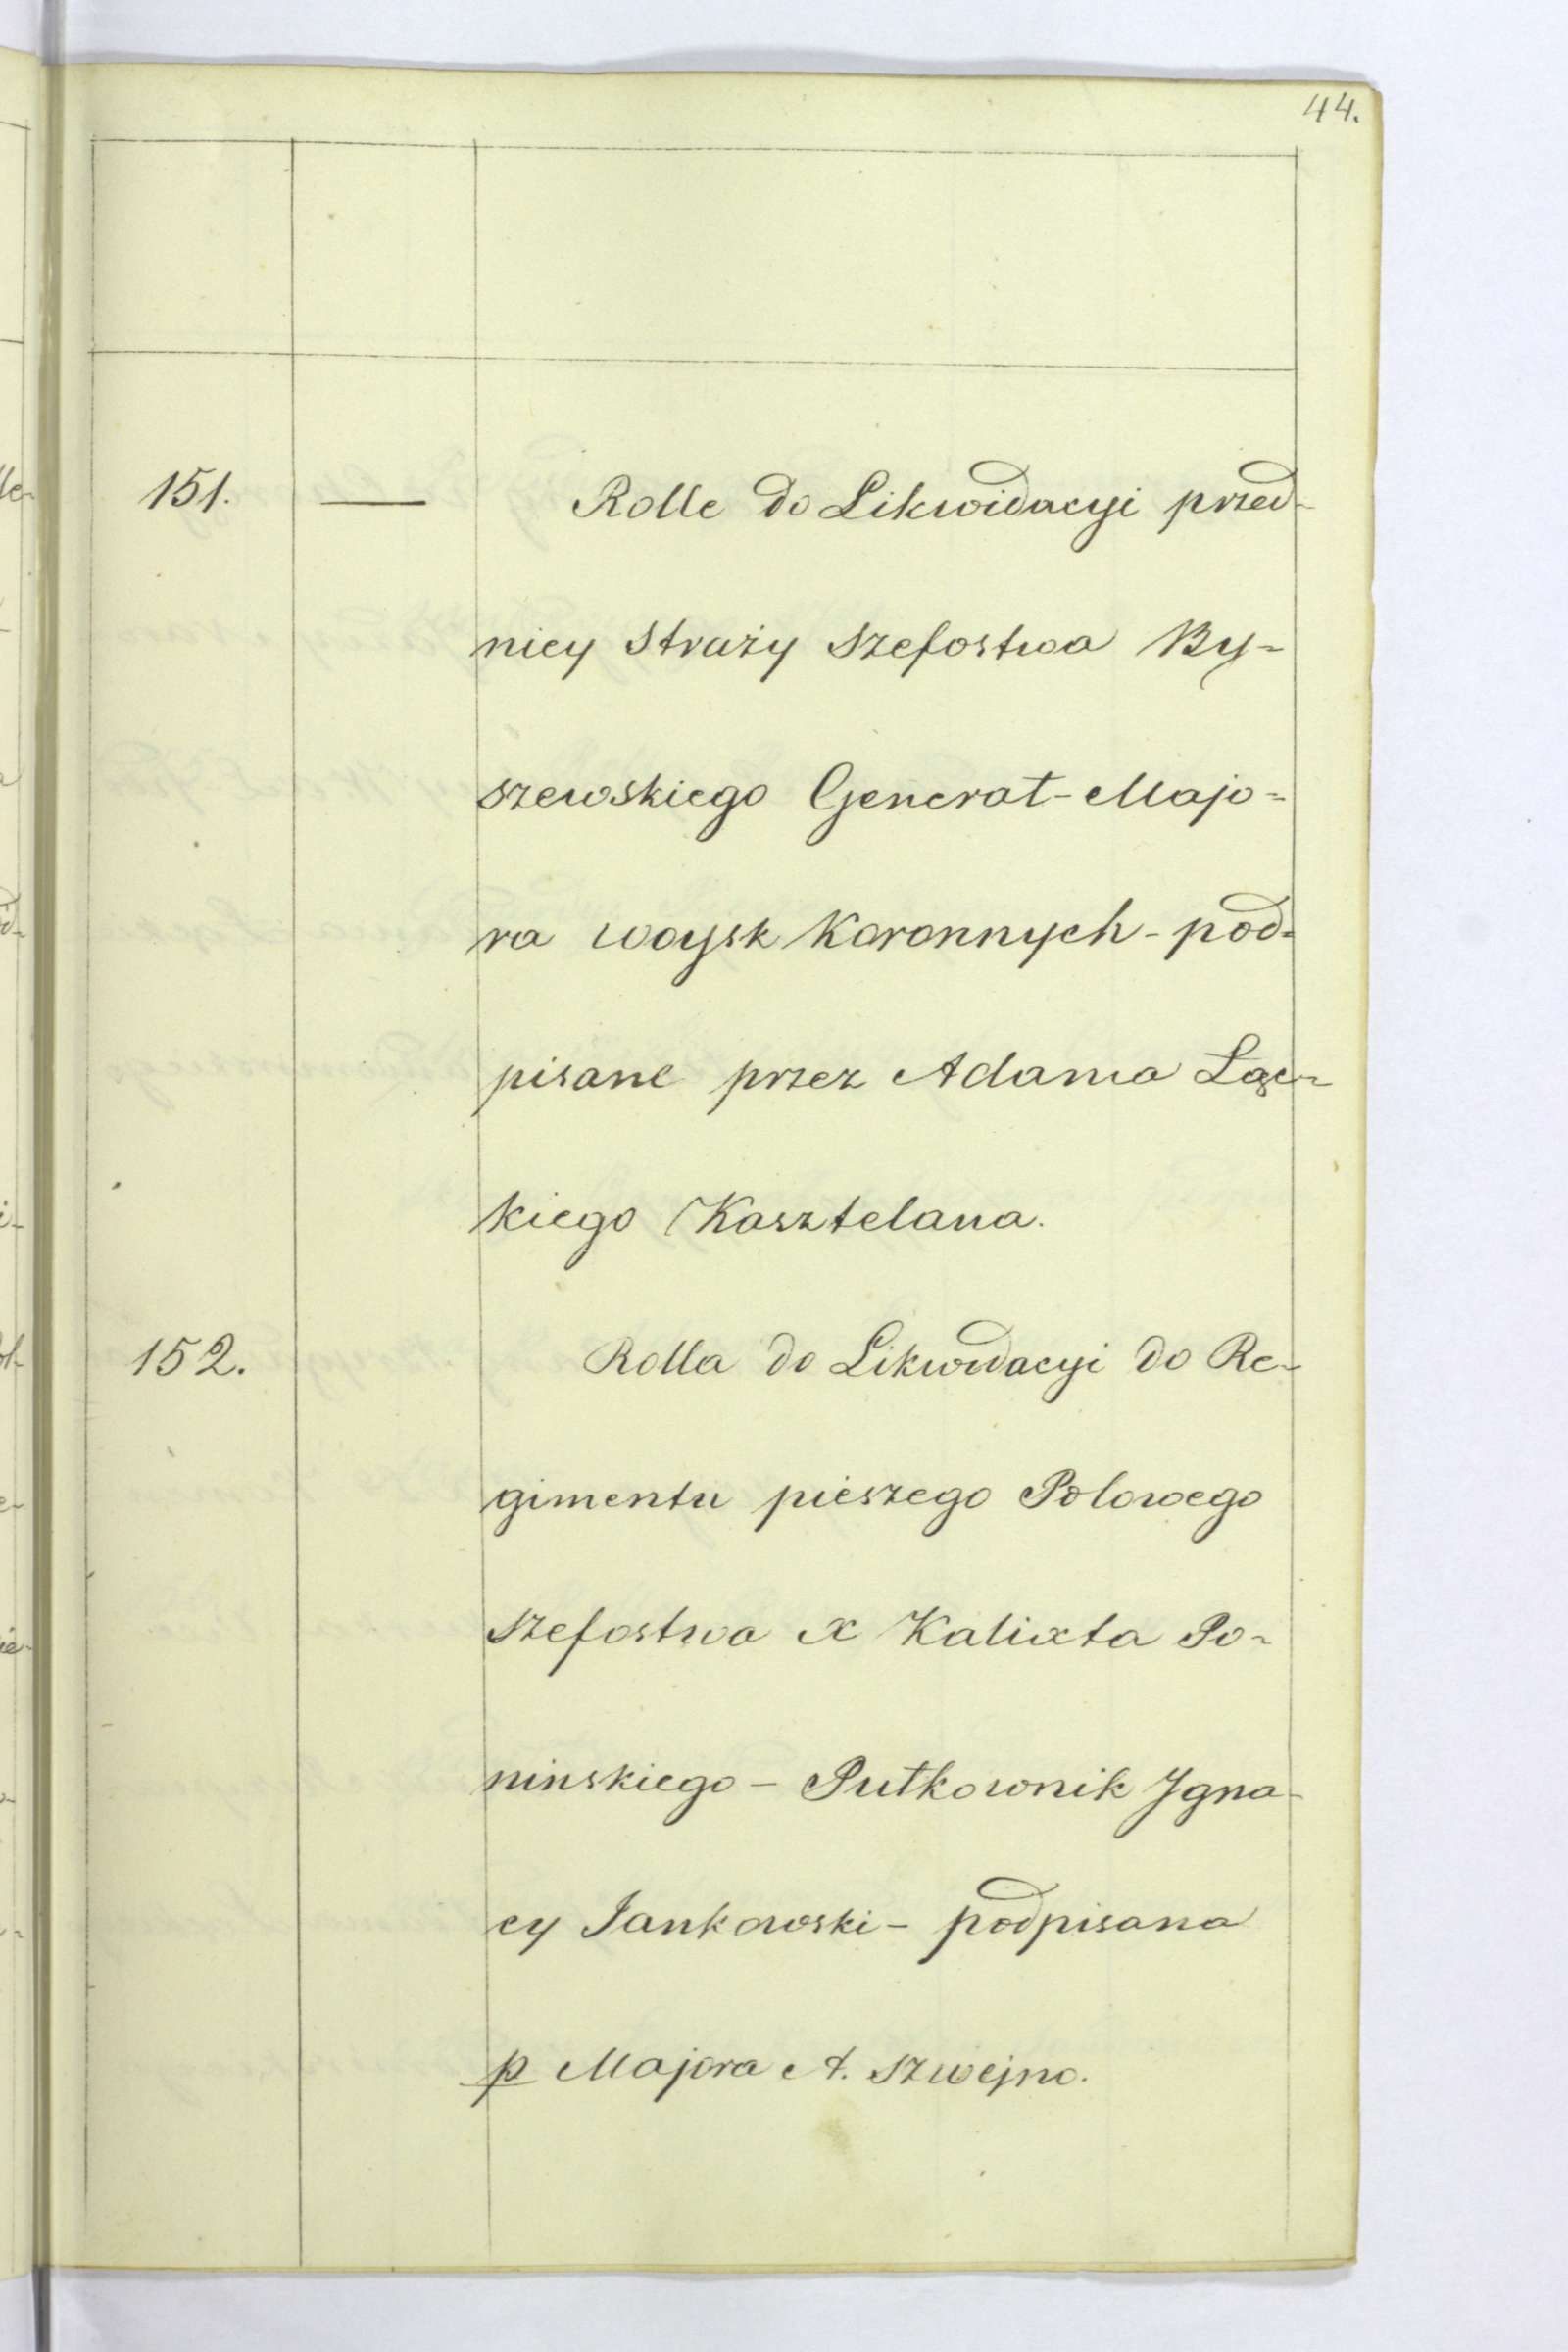 44.
151. — Rolle do Likwidacyi przed-
niey Straży Szefostwa By=
szewskiego Generał-Majo=
ra woysk Koronnych - pod=
pisane przez Adama Łąc-
kiego Kasztelana.
152. Rolla do Likwidacyi do Re-
gimentu pieszego Polowego
Szefostwa X Kalixta Po-
ninskiego - Pułkownik Igna-
cy Jankowski - podpisana
p Majora A. Szwejno.